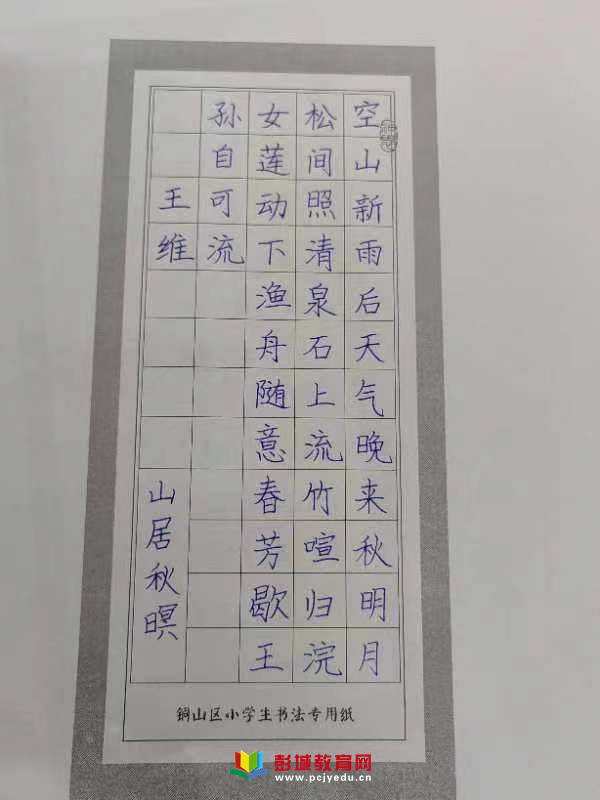 空山新雨后天气晚来秋明月
松间照清泉石上流竹喧归浣
女莲动下渔舟随意春芳歇王
孙自可流
王维
山居秋暝
铜山区小学生书法专用纸
彭城教育网
www.pcjyedu.cn